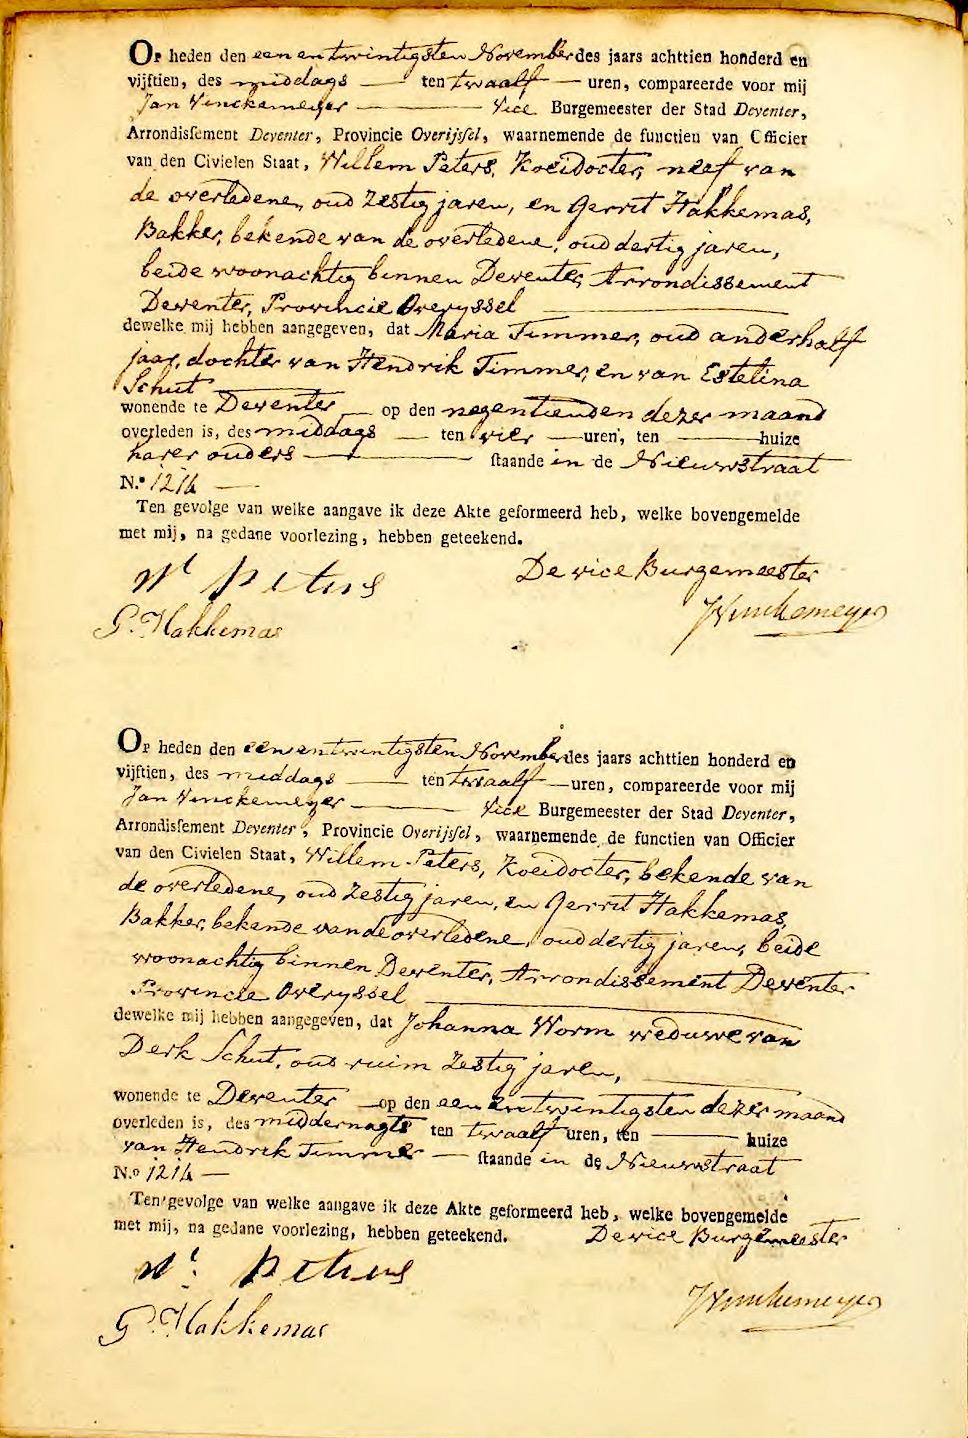 Op heden den een en twintigsten November des jaars achttien honderd en
vijftien, des middags — ten twaalf — uren, compareerde voor mij
Jan Vinckemeyer — Vice Burgemeester der Stad Deventer,
Arrondissement Deventer, Provincie Overijssel, waarnemende de functien van Officier
van den Civielen Staat, Willem Peters, Koeidocter, neef van
de overledene, oud zestig jaren, en Gerrit Hakkemas,
Bakker, bekende van de overledene, oud dertig jaren,
beide woonachtig binnen Deventer, Arrondissement
Deventer, Provincie Overyssel
dewelke mij hebben aangegeven, dat Maria Timmer, oud anderhalf
jaar, dochter van Hendrik Timmer, en van Estelina
Schut
wonende te Deventer — op den negentienden dezer maand
overleden is, des middags — ten vier — uren, ten — huize
harer ouders — staande in de Nieuwstraat
N.o 1214 —
Ten gevolge van welke aangave ik deze Akte geformeerd heb, welke bovengemelde
met mij, na gedane voorlezing, hebben geteekend.
De vice Burgemeester
Wm Peters
JVinckemeyer
G. Hakkemas
Op heden den een en twintigsten November des jaars achttien honderd en
vijftien, des middags — ten twaalf — uren, compareerde voor mij
Jan Vinckemeyer — Vice Burgemeester der Stad Deventer,
Arrondissement Deventer, Provincie Overijssel, waarnemende de functien van Officier
van den Civielen Staat, Willem Peters, Koeidocter, bekende van
de overledene, oud zestig jaren, en Gerrit Hakkemas,
Bakker, bekende van de overledene, oud dertig jaren, beide
woonachtig binnen Deventer, Arrondissement Deventer
Provincie Overyssel
dewelke mij hebben aangegeven, dat Johanna Worm weduwe van
Derk Schut, oud ruim zestig jaren,
wonende te Deventer — op den een en twintigsten dezer maand
overleden is, des middernagts ten twaalf uren, ten — huize
van Hendrik Timmer — staande in de Nieuwstraat
N.o 1214 —
Ten gevolge van welke aangave ik deze Akte geformeerd heb, welke bovengemelde
met mij, na gedane voorlezing, hebben geteekend. De vice Burgemeester
Wm Peters
JVinckemeyer
G. Hakkemas